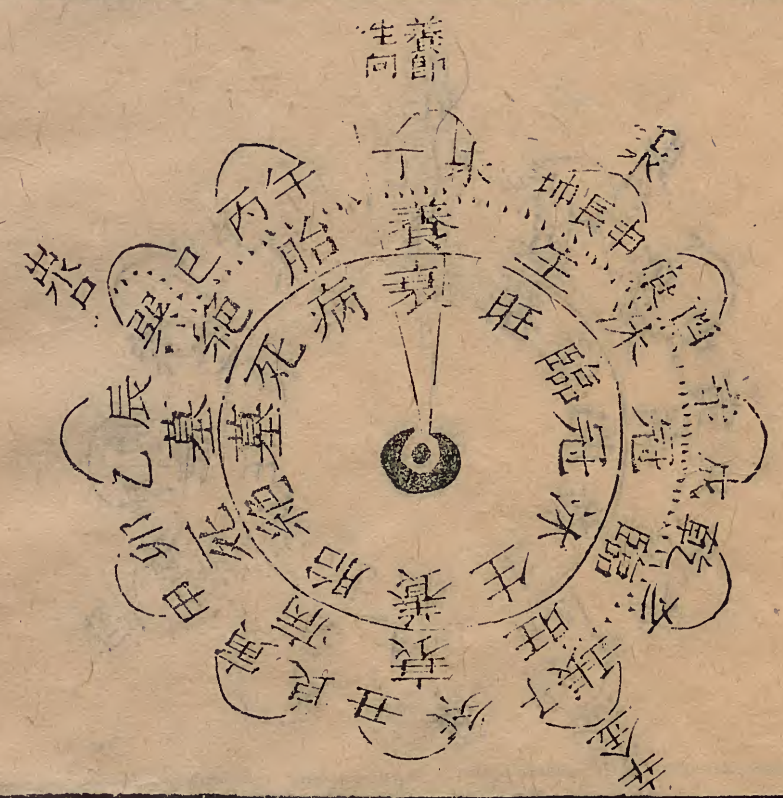 養即
生向
丁未
坤申
庚酉
辛戌
乾亥
壬子
癸丑
艮寅
甲卯
乙辰
巽巳
丙午
養
生
沐
冠
臨
旺
衰
病
死
墓
絕
胎
衰
旺
臨
冠
沐
生
養
胎
絕
墓
死
病